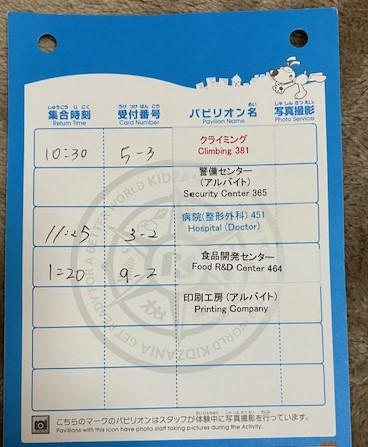 しゅうごう じこく
集合時刻
Return Time
うけつけ ばんごう
受付番号
Card Number
めい
パビリオン名
Pavilion Name
しゃしん さつえい
写真撮影
Photo Service
10:30 5-3 クライミング
Climbing 381
警備センター
(アルバイト)
Security Center 365
11:25 3-2 病院(整形外科) 451
Hospital (Doctor)
1:20 9-2 食品開発センター
Food R&D Center 464
印刷工房(アルバイト)
Printing Company
BETTER WORLD KIDZANIA GET READY FOR A BETTER WORLD KIDZANIA
こちらのマークのパビリオンはスタッフが体験中に写真撮影を行っています。
Pavilions with this icon have photo staff taking pictures during the Activity.